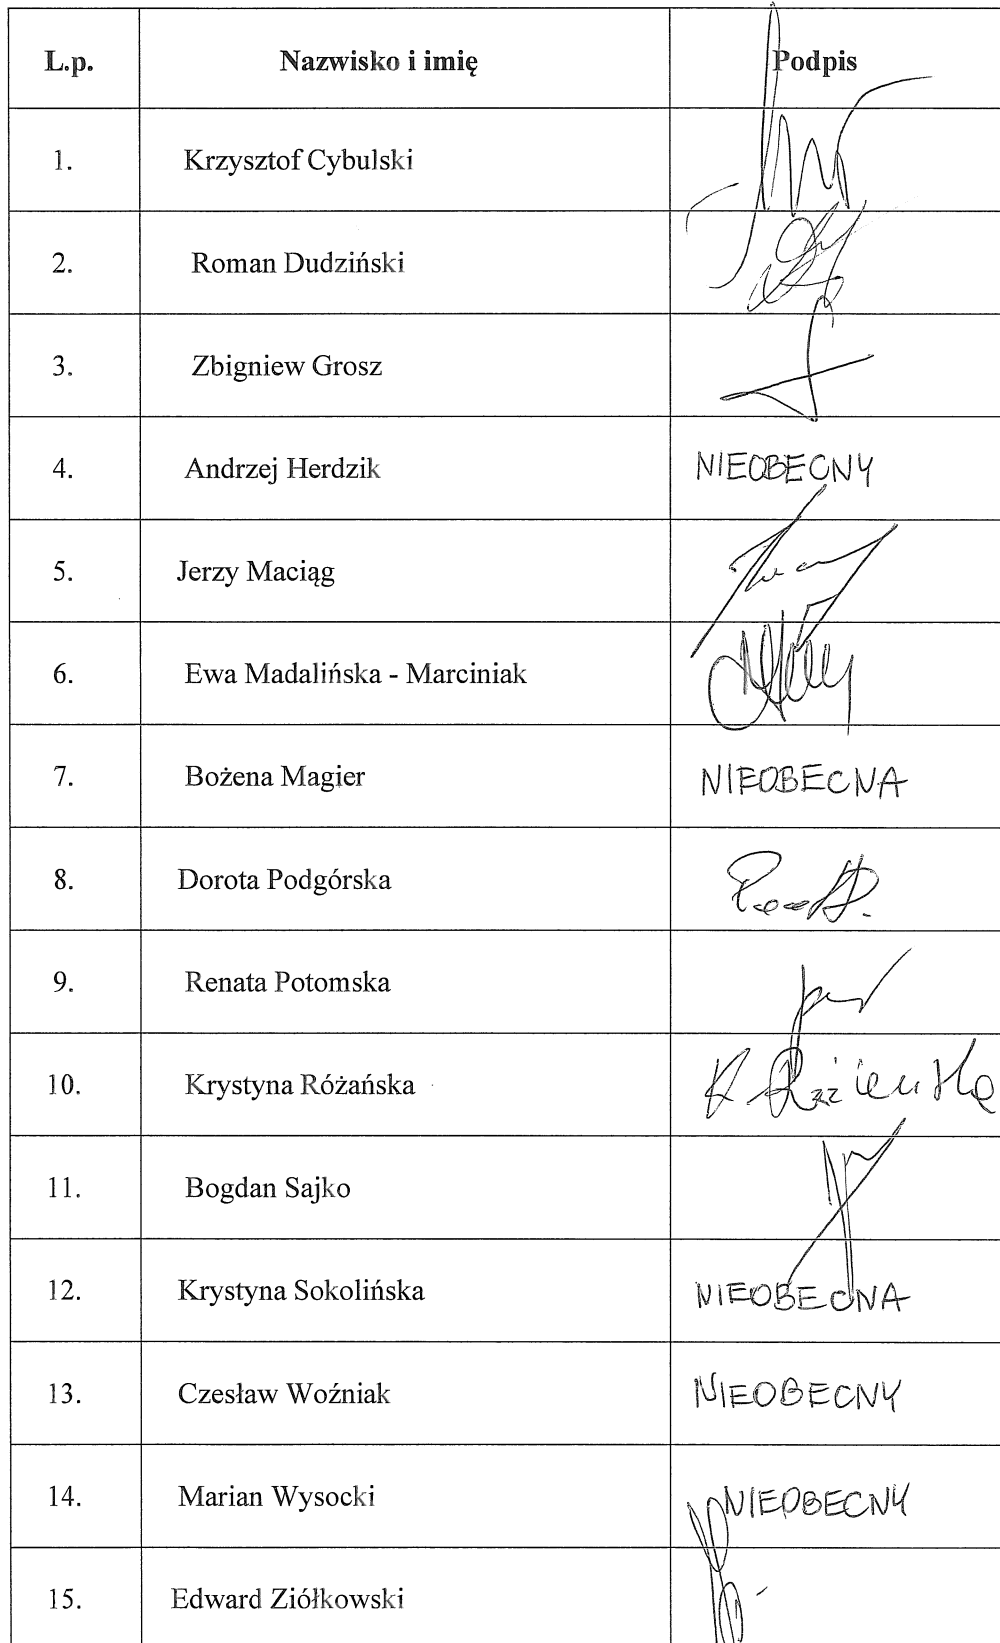 L.p. Nazwisko i imię Podpis
1. Krzysztof Cybulski
2. Roman Dudziński
3. Zbigniew Grosz
4. Andrzej Herdzik NIEOBECNY
5. Jerzy Maciąg
6. Ewa Madalińska - Marciniak
7. Bożena Magier NIEOBECNA
8. Dorota Podgórska
9. Renata Potomska
10. Krystyna Różańska
11. Bogdan Sajko
12. Krystyna Sokolińska NIEOBECNA
13. Czesław Woźniak NIEOBECNY
14. Marian Wysocki NIEOBECNY
15. Edward Ziółkowski